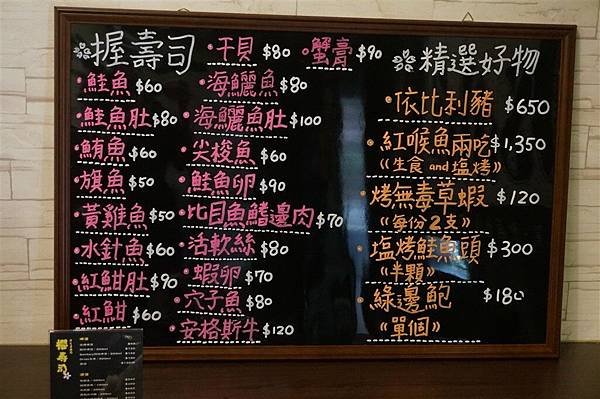 握壽司
鮭魚 $60
鮭魚肚 $80
鮪魚 $60
旗魚 $50
黃雞魚 $50
水針魚 $60
紅魽肚 $90
紅魽 $60
干貝 $80
海鱺魚 $80
海鱺魚肚 $100
尖梭魚 $60
鮭魚卵 $90
比目魚鰭邊肉 $70
活軟絲 $80
蝦卵 $70
穴子魚 $80
安格斯牛 $120
蟹膏 $90
精選好物
依比利豬 $650
紅喉魚兩吃 $1,350
《生食and塩烤》
烤無毒草蝦 $120
《每份2支》
塩烤鮭魚頭 $300
《半顆》
綠邊鮑 $180
《單個》